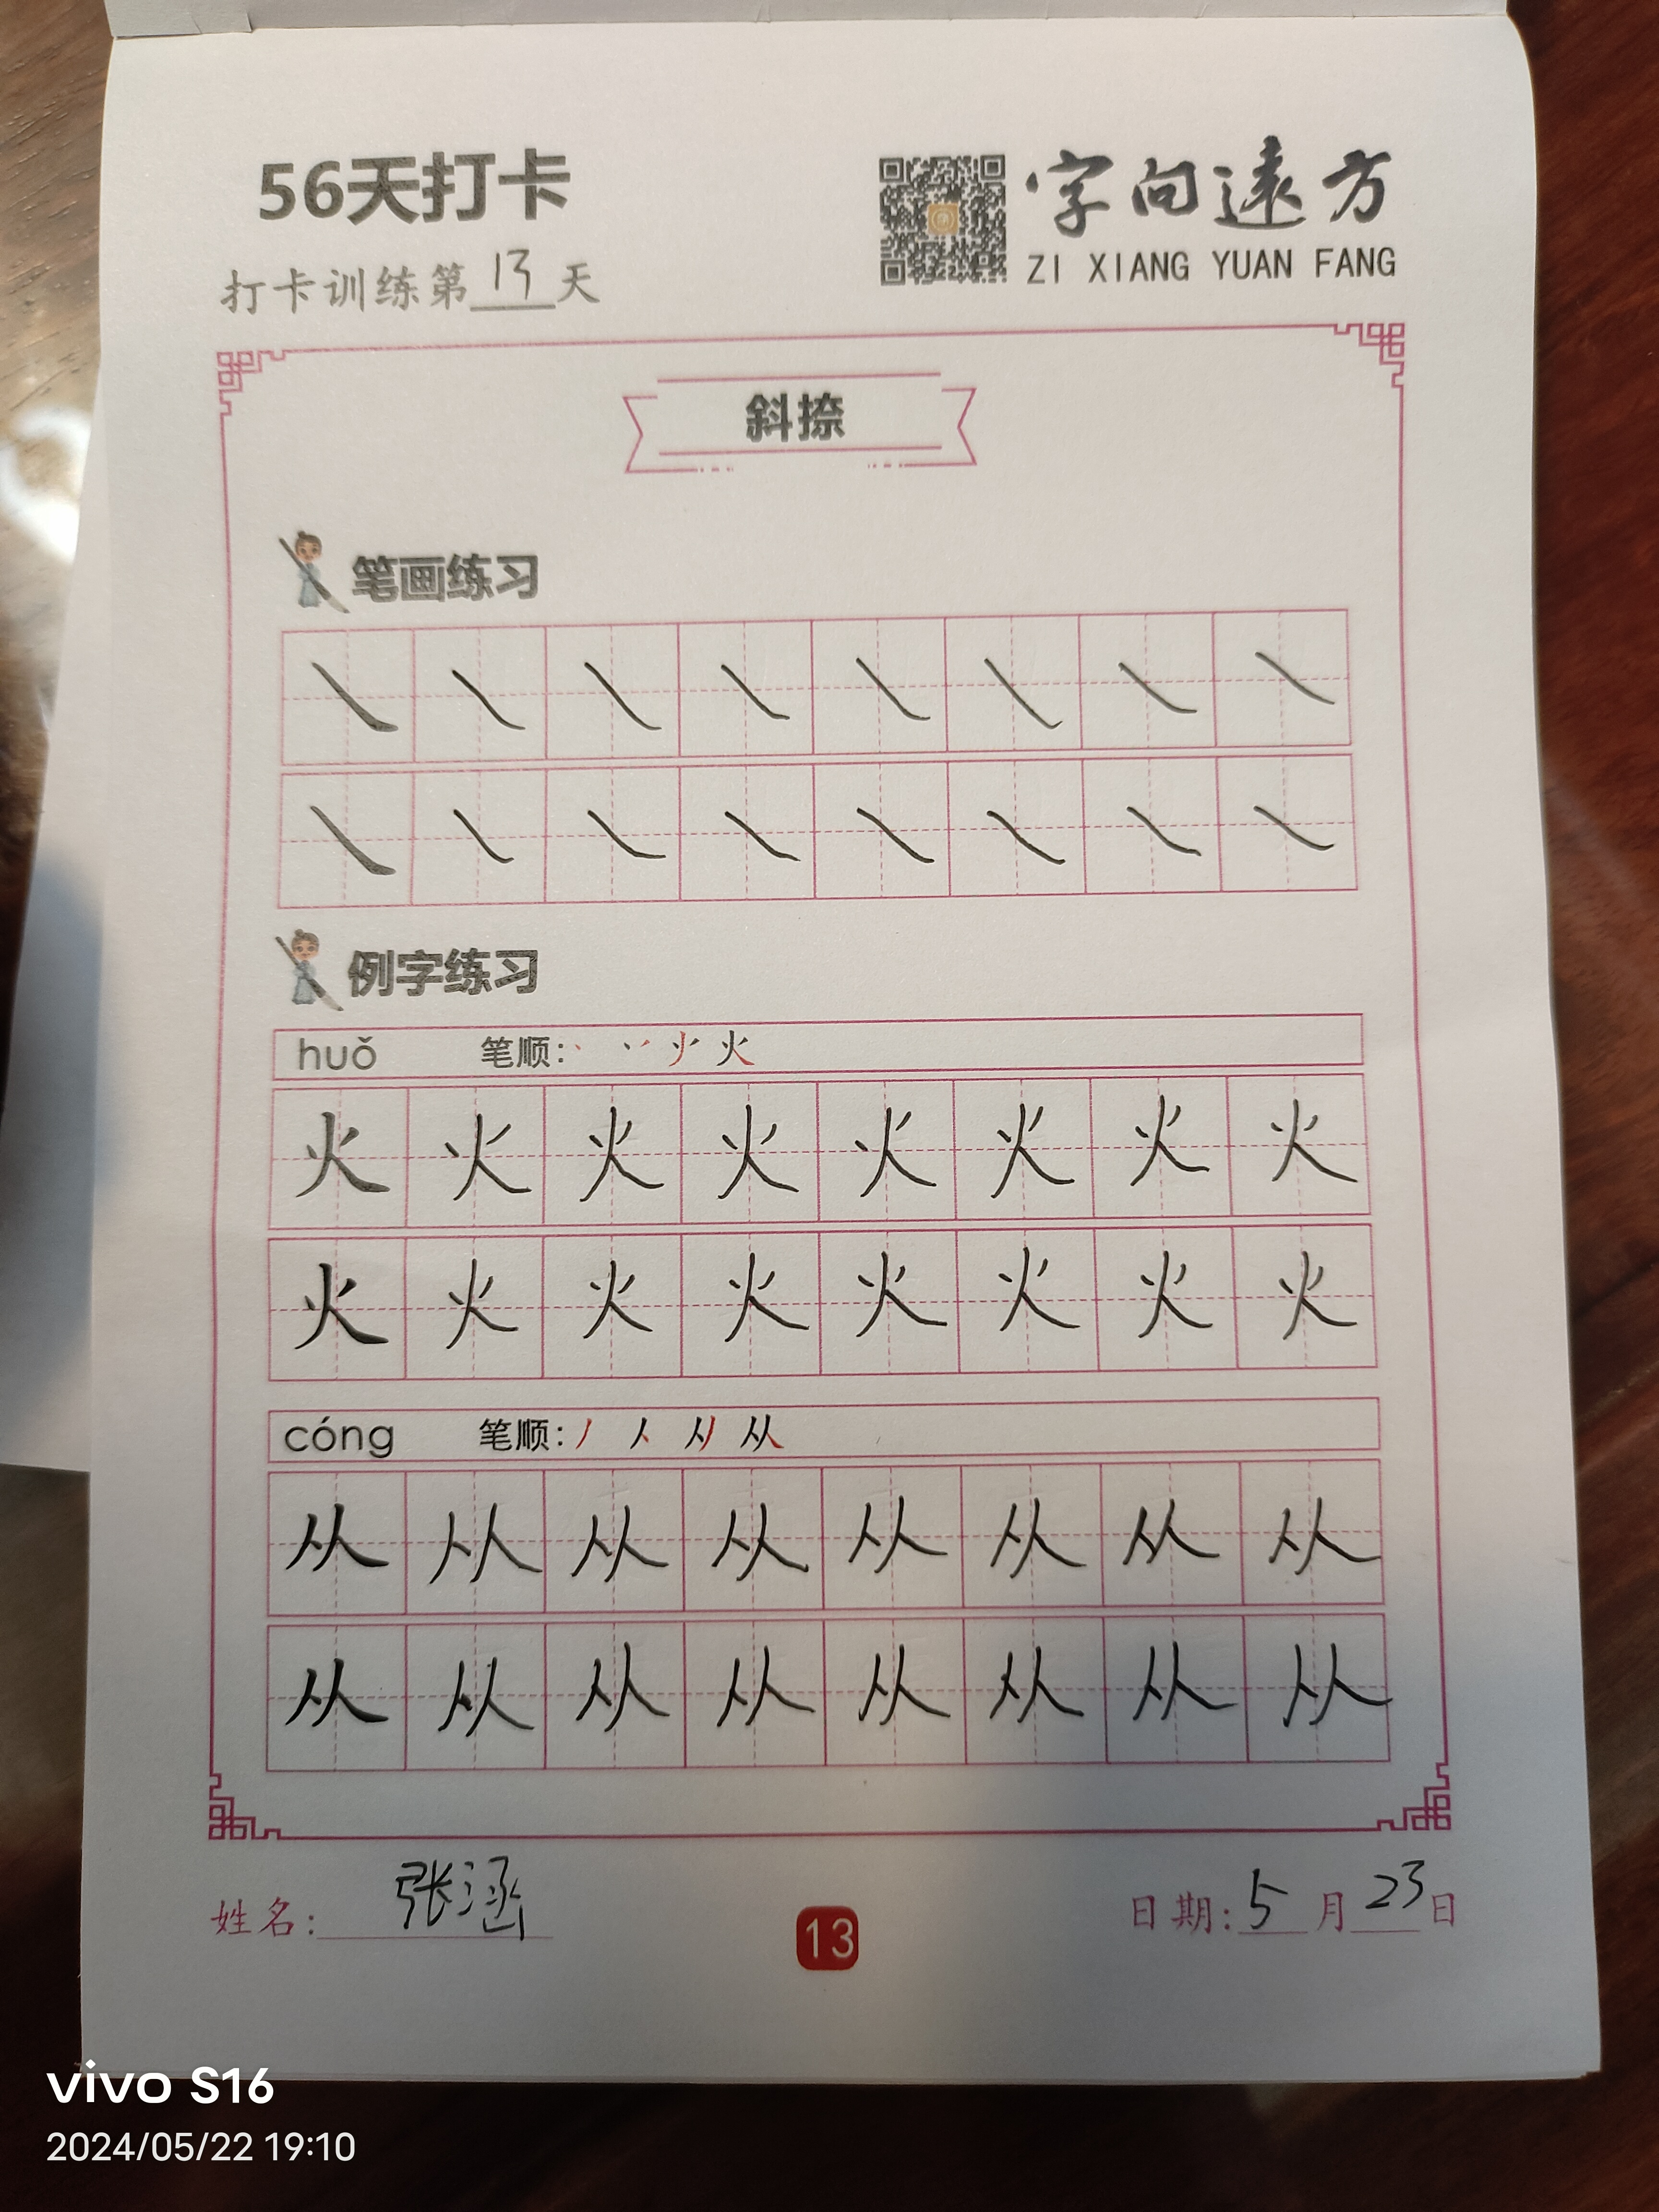 56天打卡
字向遠方
ZI XIANG YUAN FANG
打卡训练第13天
斜捺
笔画练习
㇏ ㇏ ㇏ ㇏ ㇏ ㇏ ㇏ ㇏
㇏ ㇏ ㇏ ㇏ ㇏ ㇏ ㇏ ㇏
例字练习
huǒ 笔顺: 火
火 火 火 火 火 火 火 火
火 火 火 火 火 火 火 火
cóng 笔顺: 丿 人 从
从 从 从 从 从 从 从 从
从 从 从 从 从 从 从 从
姓名: 张涵
13
日期: 5月23日
vivo S16
2024/05/22 19:10